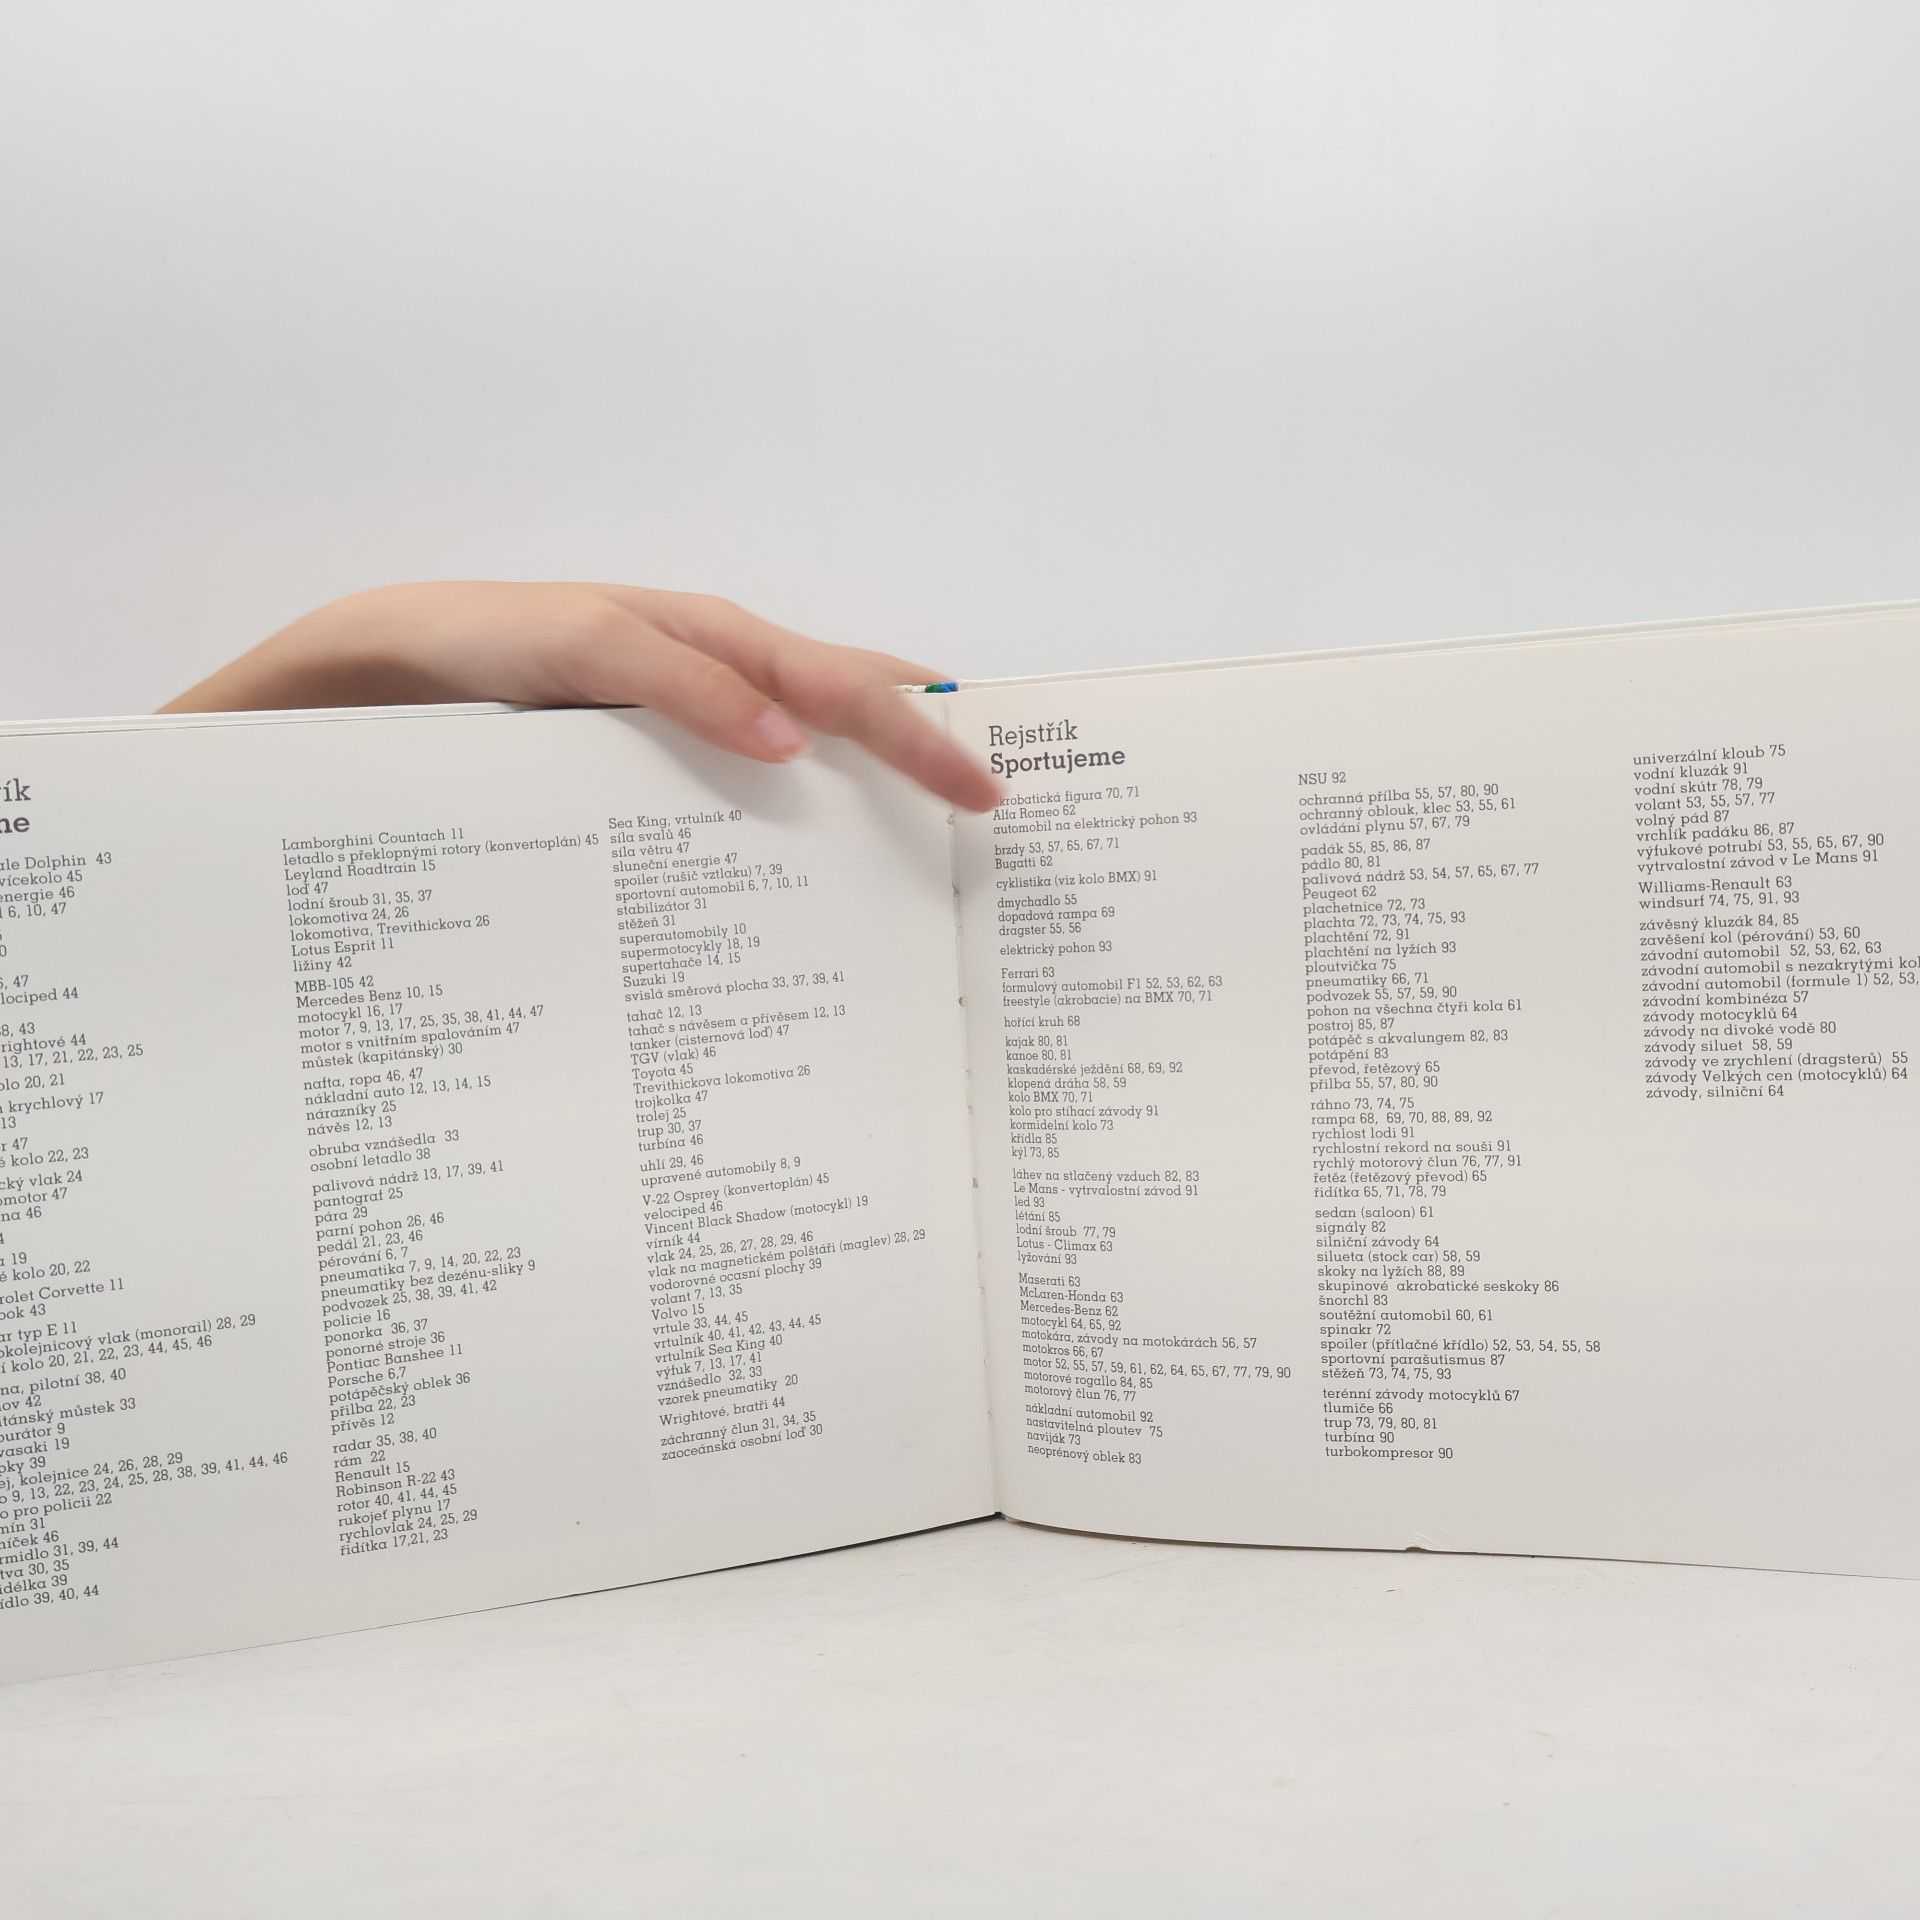 43
vícekolo 45
energie 46
6, 10, 47
47
44
43
44
13, 17, 21, 22, 23, 25
20, 21
krychlový 17
13
47
kolo 22, 23
vlak 24
47
46
19
kolo 20, 22
Corvette 11
43
typ E 11
vlak (monorail) 28, 29
kolo 20, 21, 22, 23, 44, 45, 46
pilotní 38, 40
42
můstek 33
9
19
39
kolejnice 24, 26, 28, 29
9, 13, 22, 23, 24, 25, 28, 38, 39, 41, 44, 46
pro policii 22
31
46
31, 39, 44
30, 35
39
39, 40, 44
Lamborghini Countach 11
letadlo s překlopnými rotory (konvertoplán) 45
Leyland Roadtrain 15
loď 47
lodní šroub 31, 35, 37
lokomotiva 24, 26
lokomotiva, Trevithickova 26
Lotus Esprit 11
ližiny 42
MBB-105 42
Mercedes Benz 10, 15
motocykl 16, 17
motor 7, 9, 13, 17, 25, 35, 38, 41, 44, 47
motor s vnitřním spalováním 47
můstek (kapitánský) 30
nafta, ropa 46, 47
nákladní auto 12, 13, 14, 15
nárazníky 25
návěs 12, 13
obruba vznášedla 33
osobní letadlo 38
palivová nádrž 13, 17, 39, 41
pantograf 25
pára 29
parní pohon 26, 46
pedál 21, 23, 46
pérování 6, 7
pneumatika 7, 9, 14, 20, 22, 23
pneumatiky bez dezénu-sliky 9
podvozek 25, 38, 39, 41, 42
policie 16
ponorka 36, 37
ponorné stroje 36
Pontiac Banshee 11
Porsche 6,7
potápěčský oblek 36
přilba 22, 23
přívěs 12
radar 35, 38, 40
rám 22
Renault 15
Robinson R-22 43
rotor 40, 41, 44, 45
rukojeť plynu 17
rychlovlak 24, 25, 29
řidítka 17,21, 23
Sea King, vrtulník 40
síla svalů 46
síla větru 47
sluneční energie 47
spoiler (rušič vztlaku) 7, 39
sportovní automobil 6, 7, 10, 11
stabilizátor 31
stěžeň 31
superautomobily 10
supermotocykly 18, 19
supertahače 14, 15
Suzuki 19
svislá směrová plocha 33, 37, 39, 41
tahač 12, 13
tahač s návěsem a přívěsem 12, 13
tanker (cisternová loď) 47
TGV (vlak) 46
Toyota 45
Trevithickova lokomotiva 26
trojkolka 47
trolej 25
trup 30, 37
turbína 46
uhlí 29, 46
upravené automobily 8, 9
V-22 Osprey (konvertoplán) 45
velociped 46
Vincent Black Shadow (motocykl) 19
vírník 44
vlak 24, 25, 26, 27, 28, 29, 46
vlak na magnetickém polštáři (maglev) 28, 29
vodorovné ocasní plochy 39
volant 7, 13, 35
Volvo 15
vrtule 33, 44, 45
vrtulník 40, 41, 42, 43, 44, 45
vrtulník Sea King 40
výfuk 7, 13, 17, 41
vznášedlo 32, 33
vzorek pneumatiky 20
Wrightové, bratři 44
záchranný člun 31, 34, 35
zaoceánská osobní loď 30
Rejstřík
Sportujeme
akrobatická figura 70, 71
Alfa Romeo 62
automobil na elektrický pohon 93
brzdy 53, 57, 65, 67, 71
Bugatti 62
cyklistika (viz kolo BMX) 91
dmychadlo 55
dopadová rampa 69
dragster 55, 56
elektrický pohon 93
Ferrari 63
formulový automobil F1 52, 53, 62, 63
freestyle (akrobacie) na BMX 70, 71
hořící kruh 68
kajak 80, 81
kanoe 80, 81
kaskadérské ježdění 68, 69, 92
klopená dráha 58, 59
kolo BMX 70, 71
kolo pro stíhací závody 91
kormidelní kolo 73
křídla 85
kýl 73, 85
láhev na stlačený vzduch 82, 83
Le Mans - vytrvalostní závod 91
led 93
létání 85
lodní šroub 77, 79
Lotus - Climax 63
lyžování 93
Maserati 63
McLaren-Honda 63
Mercedes-Benz 62
motocykl 64, 65, 92
motokára, závody na motokárách 56, 57
motokros 66, 67
motor 52, 55, 57, 59, 61, 62, 64, 65, 67, 77, 79, 90
motorové rogallo 84, 85
motorový člun 76, 77
nákladní automobil 92
nastavitelná ploutev 75
naviják 73
neoprénový oblek 83
NSU 92
ochranná přilba 55, 57, 80, 90
ochranný oblouk, klec 53, 55, 61
ovládání plynu 57, 67, 79
padák 55, 85, 86, 87
pádlo 80, 81
palivová nádrž 53, 54, 57, 65, 67, 77
Peugeot 62
plachetnice 72, 73
plachta 72, 73, 74, 75, 93
plachtění 72, 91
plachtění na lyžích 93
ploutvička 75
pneumatiky 66, 71
podvozek 55, 57, 59, 90
pohon na všechna čtyři kola 61
postroj 85, 87
potápěč s akvalungem 82, 83
potápění 83
převod, řetězový 65
přilba 55, 57, 80, 90
ráhno 73, 74, 75
rampa 68, 69, 70, 88, 89, 92
rychlost lodi 91
rychlostní rekord na souši 91
rychlý motorový člun 76, 77, 91
řetěz (řetězový převod) 65
řidítka 65, 71, 78, 79
sedan (saloon) 61
signály 82
silniční závody 64
silueta (stock car) 58, 59
skoky na lyžích 88, 89
skupinové akrobatické seskoky 86
šnorchl 83
soutěžní automobil 60, 61
spinakr 72
spoiler (přítlačné křídlo) 52, 53, 54, 55, 58
sportovní parašutismus 87
stěžeň 73, 74, 75, 93
terénní závody motocyklů 67
tlumiče 66
trup 73, 79, 80, 81
turbína 90
turbokompresor 90
univerzální kloub 75
vodní kluzák 91
vodní skútr 78, 79
volant 53, 55, 57, 77
volný pád 87
vrchlík padáku 86, 87
výfukové potrubí 53, 55, 65, 67, 90
vytrvalostní závod v Le Mans 91
Williams-Renault 63
windsurf 74, 75, 91, 93
závěsný kluzák 84, 85
zavěšení kol (pérování) 53, 60
závodní automobil 52, 53, 62, 63
závodní automobil s nezakrytými
závodní automobil (formule 1) 52, 53,
závodní kombinéza 57
závody motocyklů 64
závody na divoké vodě 80
závody siluet 58, 59
závody ve zrychlení (dragsterů) 55
závody Velkých cen (motocyklů) 64
závody, silniční 64